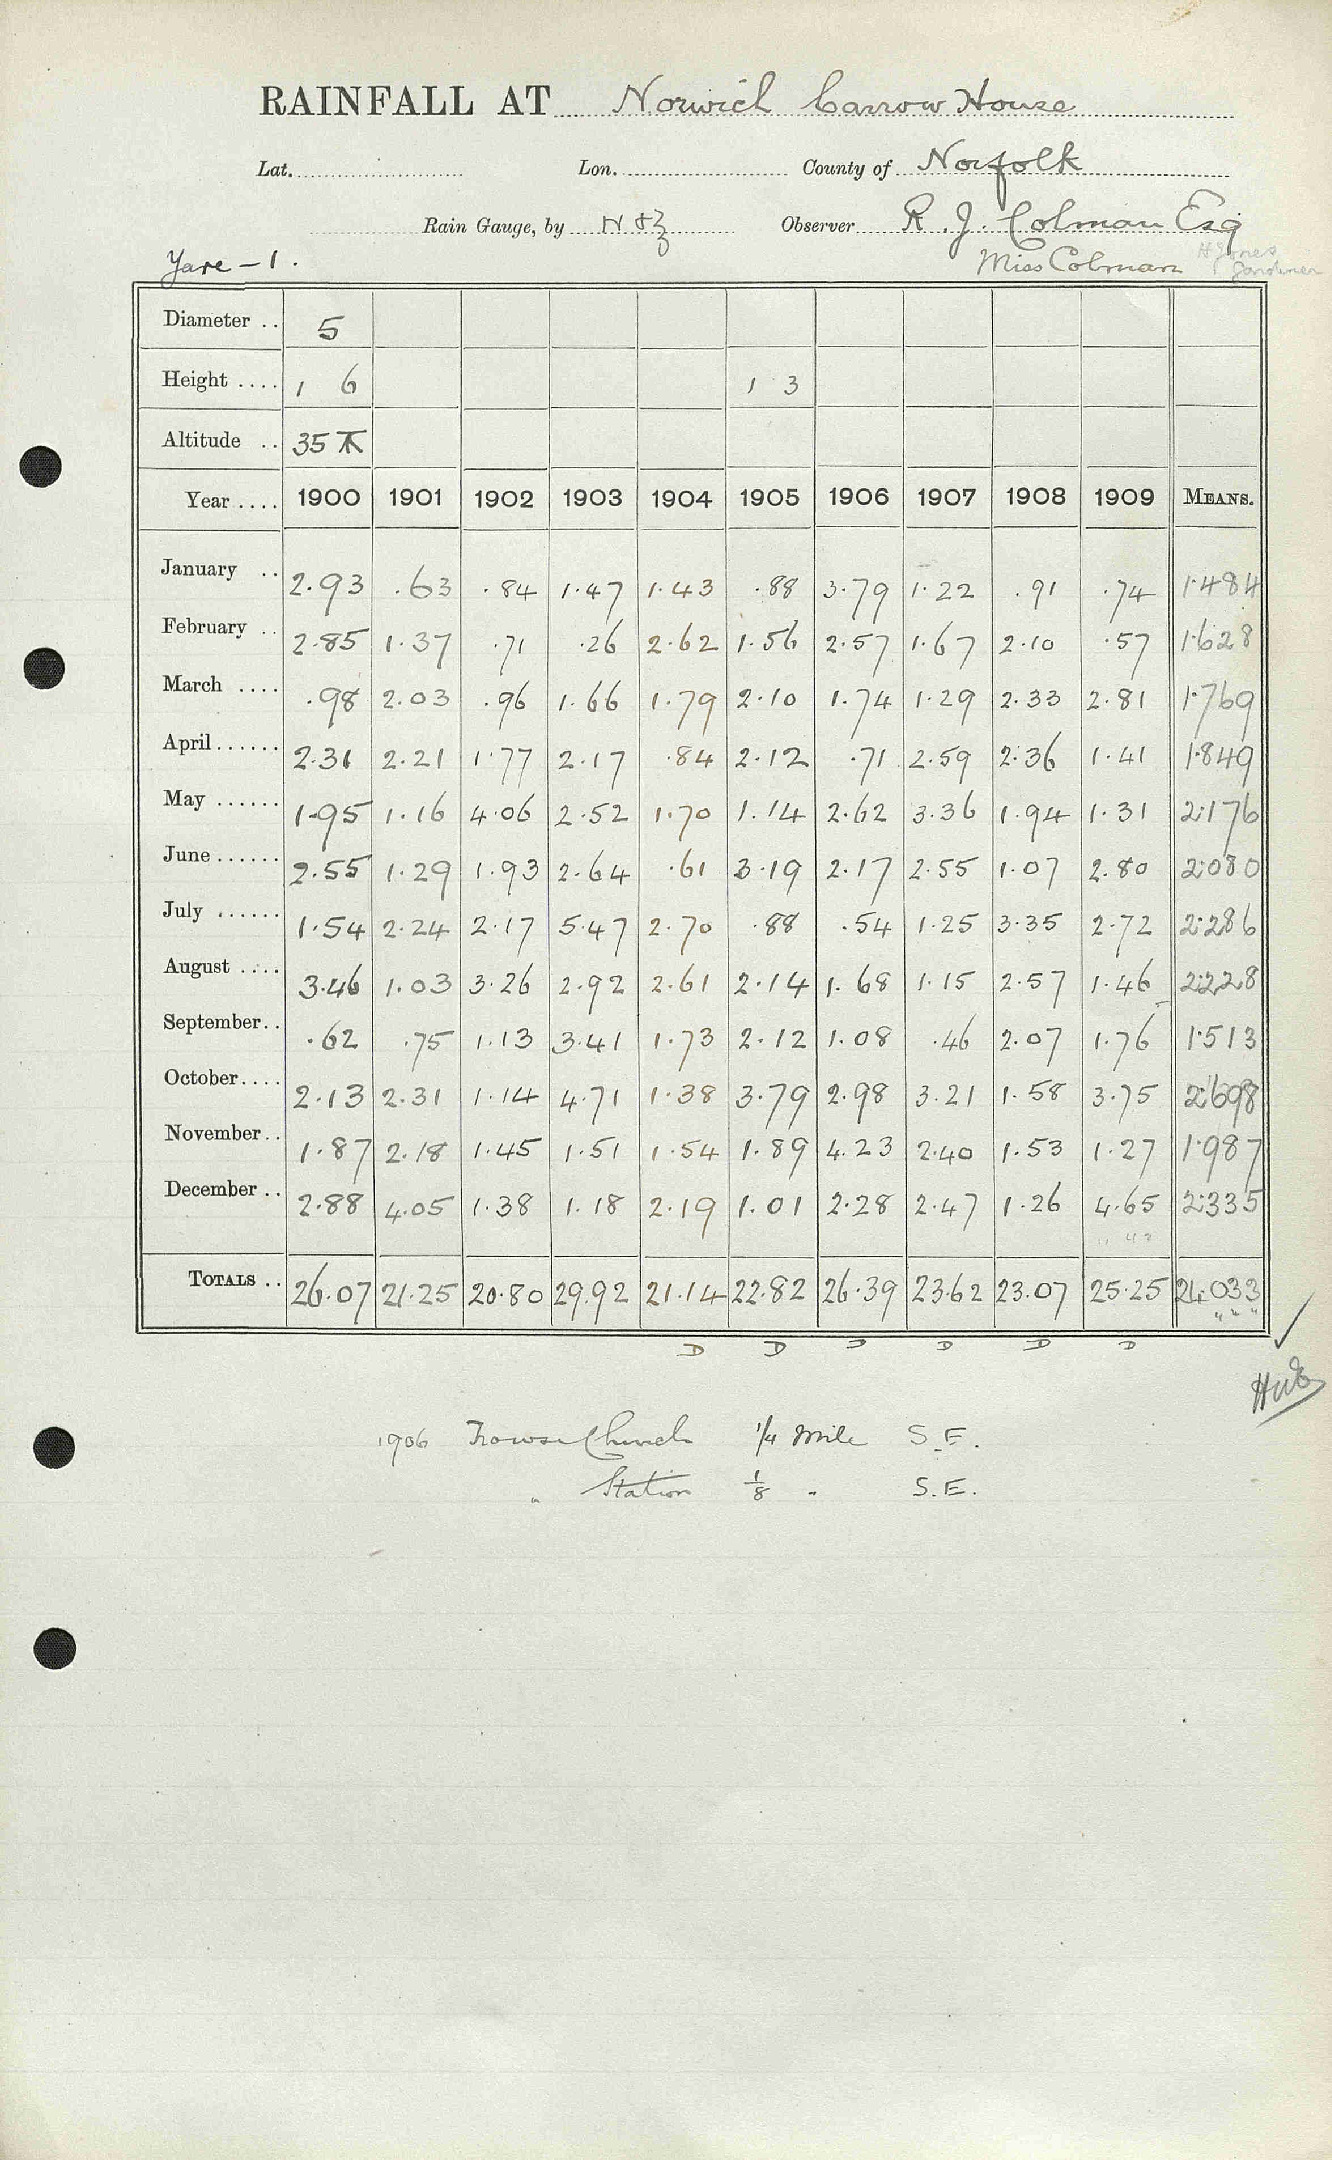 RAINFALL AT Norwich Carrow House
Lat. Lon. County of Norfolk
Rain Gauge, by N & Z Observer R. J. Colman Esq
Yare - 1. Miss Colman H Jones Gardiner
Diameter .. 5
Height .... 1 6 1 3
Altitude .. 35
Year .... 1900 1901 1902 1903 1904 1905 1906 1907 1908 1909 MEANS.
January .. 2.93 .63 .84 1.47 1.43 .88 3.79 1.22 .91 .74 1.484
February .. 2.85 1.37 .71 .26 2.62 1.56 2.57 1.67 2.10 .57 1.628
March .... .98 2.03 .96 1.66 1.79 2.10 1.74 1.29 2.33 2.81 1.769
April ...... 2.31 2.21 1.77 2.17 .84 2.12 .71 2.59 2.36 1.41 1.849
May ...... 1.95 1.16 4.06 2.52 1.70 1.14 2.62 3.36 1.94 1.31 2.176
June ...... 2.55 1.29 1.93 2.64 .61 3.19 2.17 2.55 1.07 2.80 2.080
July ...... 1.54 2.24 2.17 5.47 2.70 .88 .54 1.25 3.35 2.72 2.286
August .... 3.46 1.03 3.26 2.92 2.61 2.14 1.68 1.15 2.57 1.46 2.228
September .. .62 .75 1.13 3.41 1.73 2.12 1.08 .46 2.07 1.76 1.513
October .... 2.13 2.31 1.14 4.71 1.38 3.79 2.98 3.21 1.58 3.75 2.698
November .. 1.87 2.18 1.45 1.51 1.54 1.89 4.23 2.40 1.53 1.27 1.987
December .. 2.88 4.05 1.38 1.18 2.19 1.01 2.28 2.47 1.26 4.65 2.335
TOTALS .. 26.07 21.25 20.80 29.92 21.14 22.82 26.39 23.62 23.07 25.25 24.033
D D D D D D
1906 Trowse Church 1/4 Mile S.E.
" Station 1/8 " S.E.